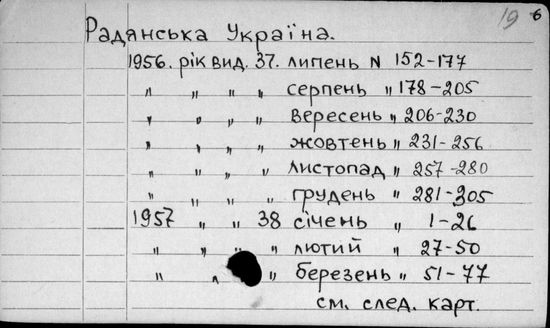 19 6
Радянська Україна.
1956. рік вид. 37. липень N 152-177
" " " " серпень " 178-205
" " " " вересень " 206-230
" " " " жовтень " 231-256
" " " " листопад " 257-280
" " " " грудень " 281-305
1957 " " 38 січень " 1-26
" " " " лютий " 27-50
" " " березень " 51-77
см. след. карт.